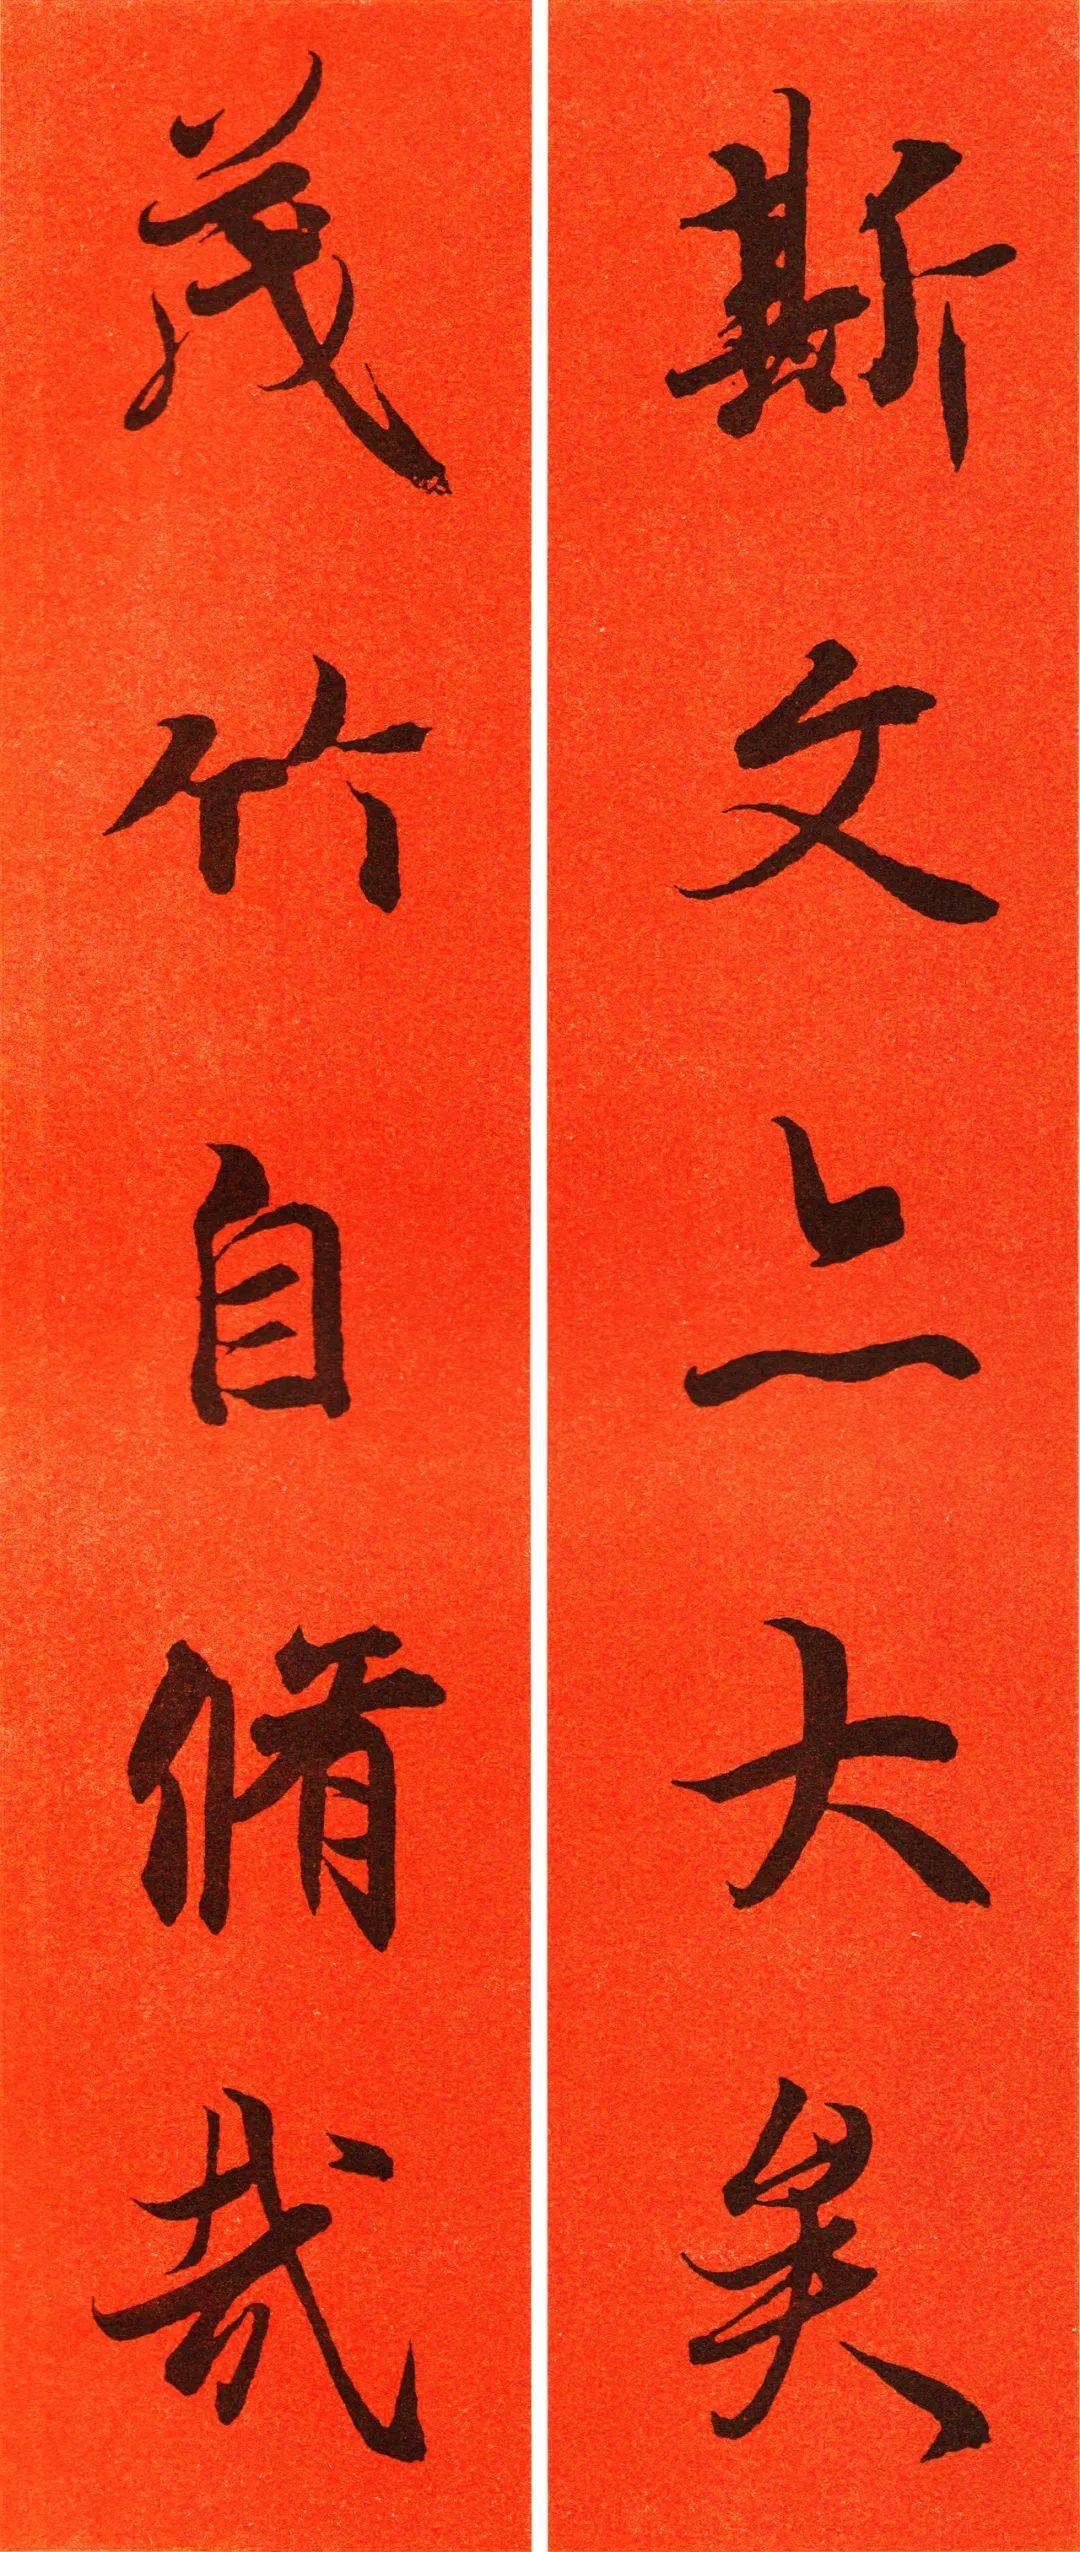 斯文亦大矣
茂竹自脩哉